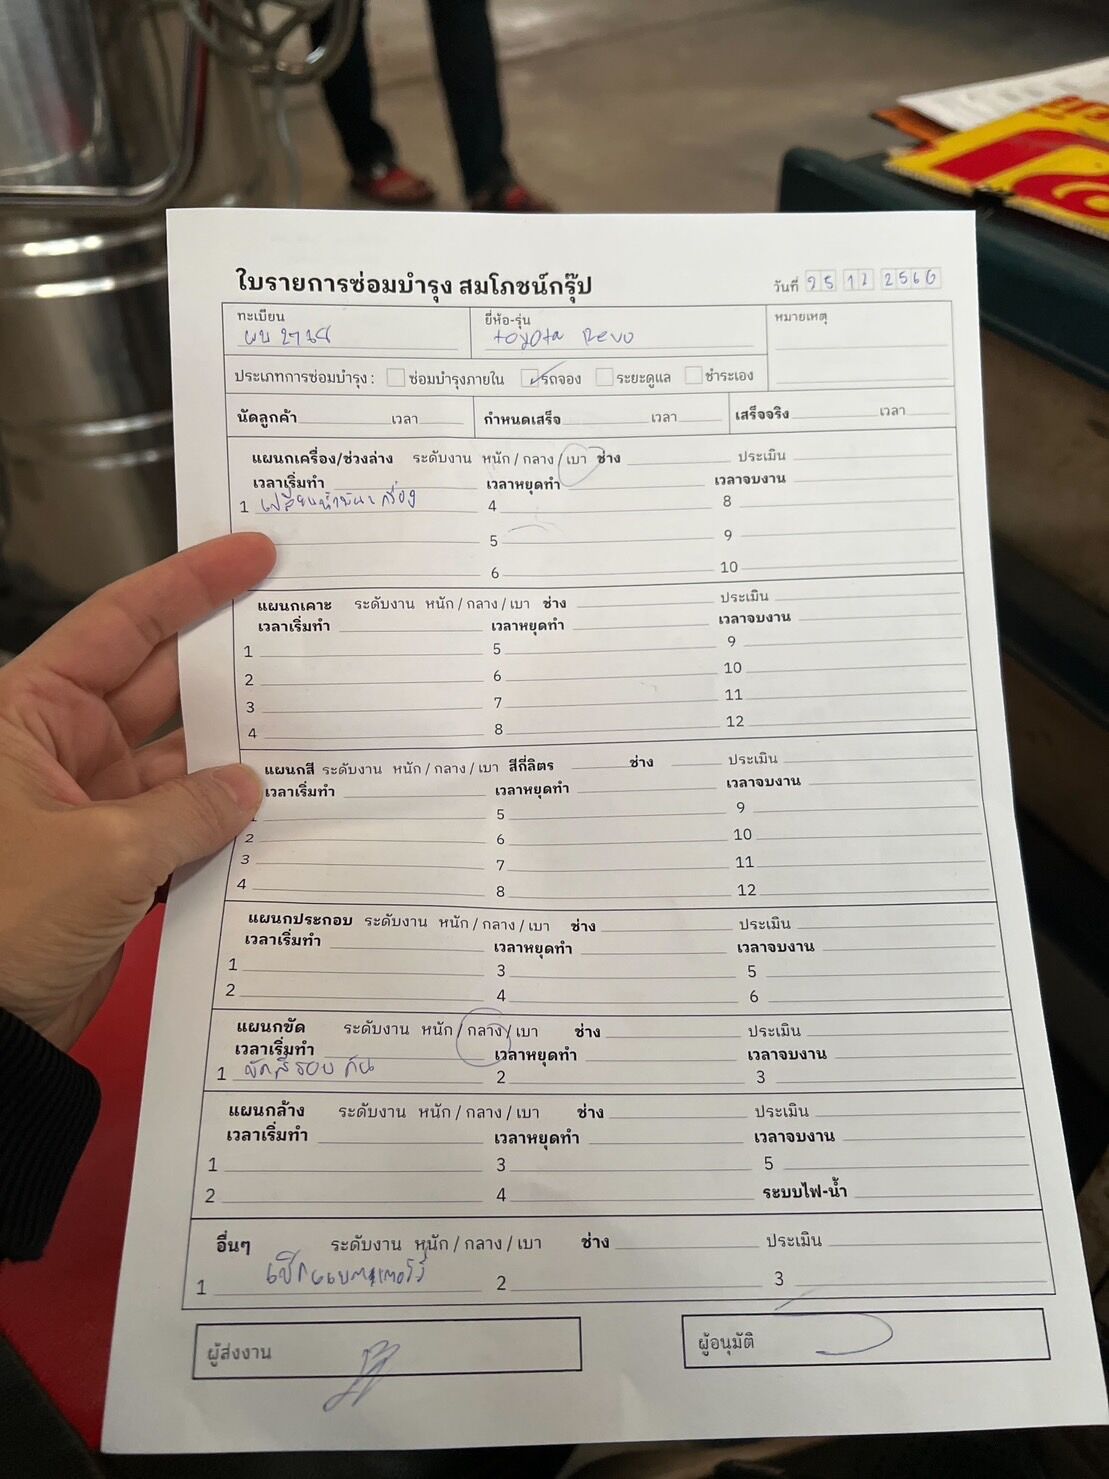 ใบรายการซ่อมบำรุง สมโภชน์กรุ๊ป
วันที่ 25 12 2566
ทะเบียน
ยี่ห้อ-รุ่น
หมายเหตุ
toyota Revo
ประเภทการซ่อมบำรุง : ซ่อมบำรุงภายใน รถจอง ระยะดูแล ชำระเอง
นัดลูกค้า เวลา กำหนดเสร็จ เวลา เสร็จจริง เวลา
แผนกเครื่อง/ช่วงล่าง ระดับงาน หนัก / กลาง / เบา ช่าง ประเมิน
เวลาเริ่มทำ เวลาหยุดทำ เวลาจบงาน
1 เปลี่ยนน้ำมันเครื่อง 4 8
5 9
6 10
แผนกเคาะ ระดับงาน หนัก / กลาง / เบา ช่าง ประเมิน
เวลาเริ่มทำ เวลาหยุดทำ เวลาจบงาน
1 5 9
2 6 10
3 7 11
4 8 12
แผนกสี ระดับงาน หนัก / กลาง / เบา สีกี่ลิตร ช่าง ประเมิน
เวลาเริ่มทำ เวลาหยุดทำ เวลาจบงาน
5 9
2 6 10
3 7 11
4 8 12
แผนกประกอบ ระดับงาน หนัก / กลาง / เบา ช่าง ประเมิน
เวลาเริ่มทำ เวลาหยุดทำ เวลาจบงาน
1 3 5
2 4 6
แผนกขัด ระดับงาน หนัก / กลาง / เบา ช่าง ประเมิน
เวลาเริ่มทำ เวลาหยุดทำ เวลาจบงาน
1 ขัดสีรอบคัน 2 3
แผนกล้าง ระดับงาน หนัก / กลาง / เบา ช่าง ประเมิน
เวลาเริ่มทำ เวลาหยุดทำ เวลาจบงาน
1 3 5
2 4 ระบบไฟ-น้ำ
อื่นๆ ระดับงาน หนัก / กลาง / เบา ช่าง ประเมิน
1 เช็คแบตเตอรี่ 2 3
ผู้ส่งงาน
ผู้อนุมัติ